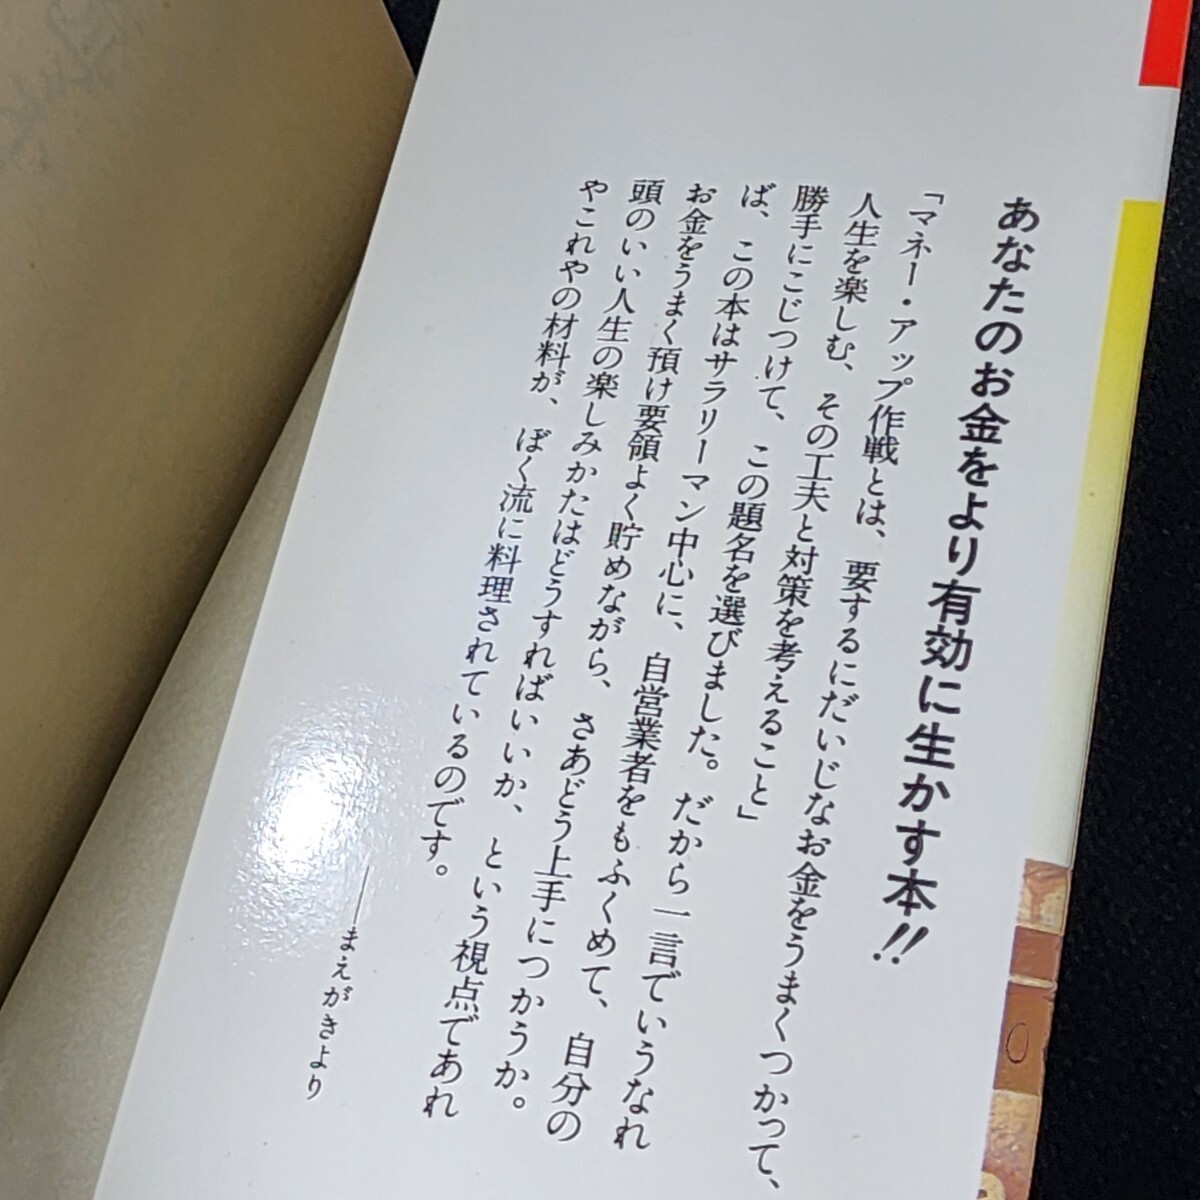 あなたのお金をより有効に生かす本!!
「マネー・アップ作戦とは、要するにだいじなお金をうまくつかって、
人生を楽しむ、その工夫と対策を考えること」
勝手にこじつけて、この題名を選びました。だから一言でいうなれ
ば、この本はサラリーマン中心に、自営業者をもふくめて、自分の
お金をうまく預け要領よく貯めながら、さあどう上手につかうか。
頭のいい人生の楽しみかたはどうすればいいか、という視点であれ
やこれやの材料が、ぼく流に料理されているのです。
——まえがきより